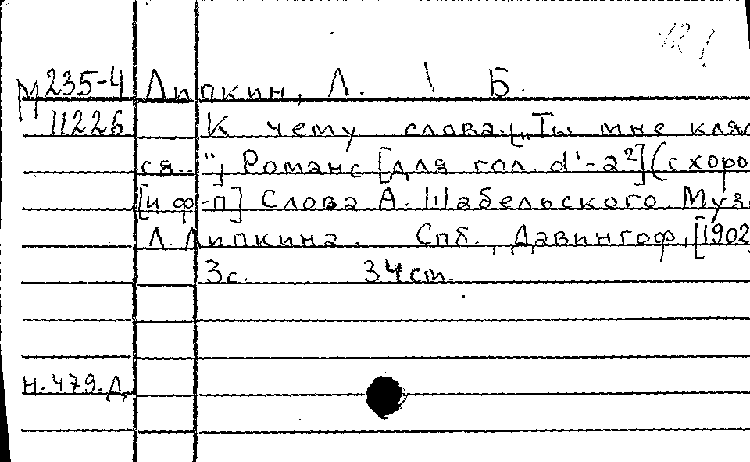 М 235-4 Липкин, Л. Б.
11226 К чему слова. („Ты мне кля
ся.."), Романс [для гол. d'-a²] (с хоро
[и ф-п] Слова А. Шабельского. Муз.
Л. Липкина. Спб., Давингоф, [1902
3с. 34 cm.
н.479.д